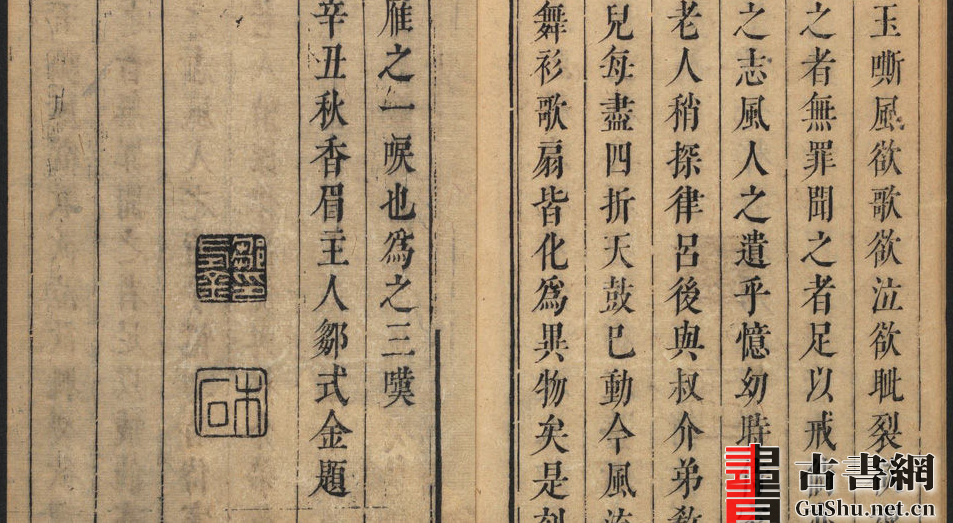 玉嘶風欲歌欲泣欲眦裂
之者無罪聞之者足以戒
之志風人之遺乎憶幼時
老人稍探律呂後與叔介弟
兒每盡四折天鼓已動今風流
舞衫歌扇皆化為異物矣是刻
雁之一唳也為之三嘆
辛丑秋香眉主人鄒式金題
古書網
GuShu.net.cn